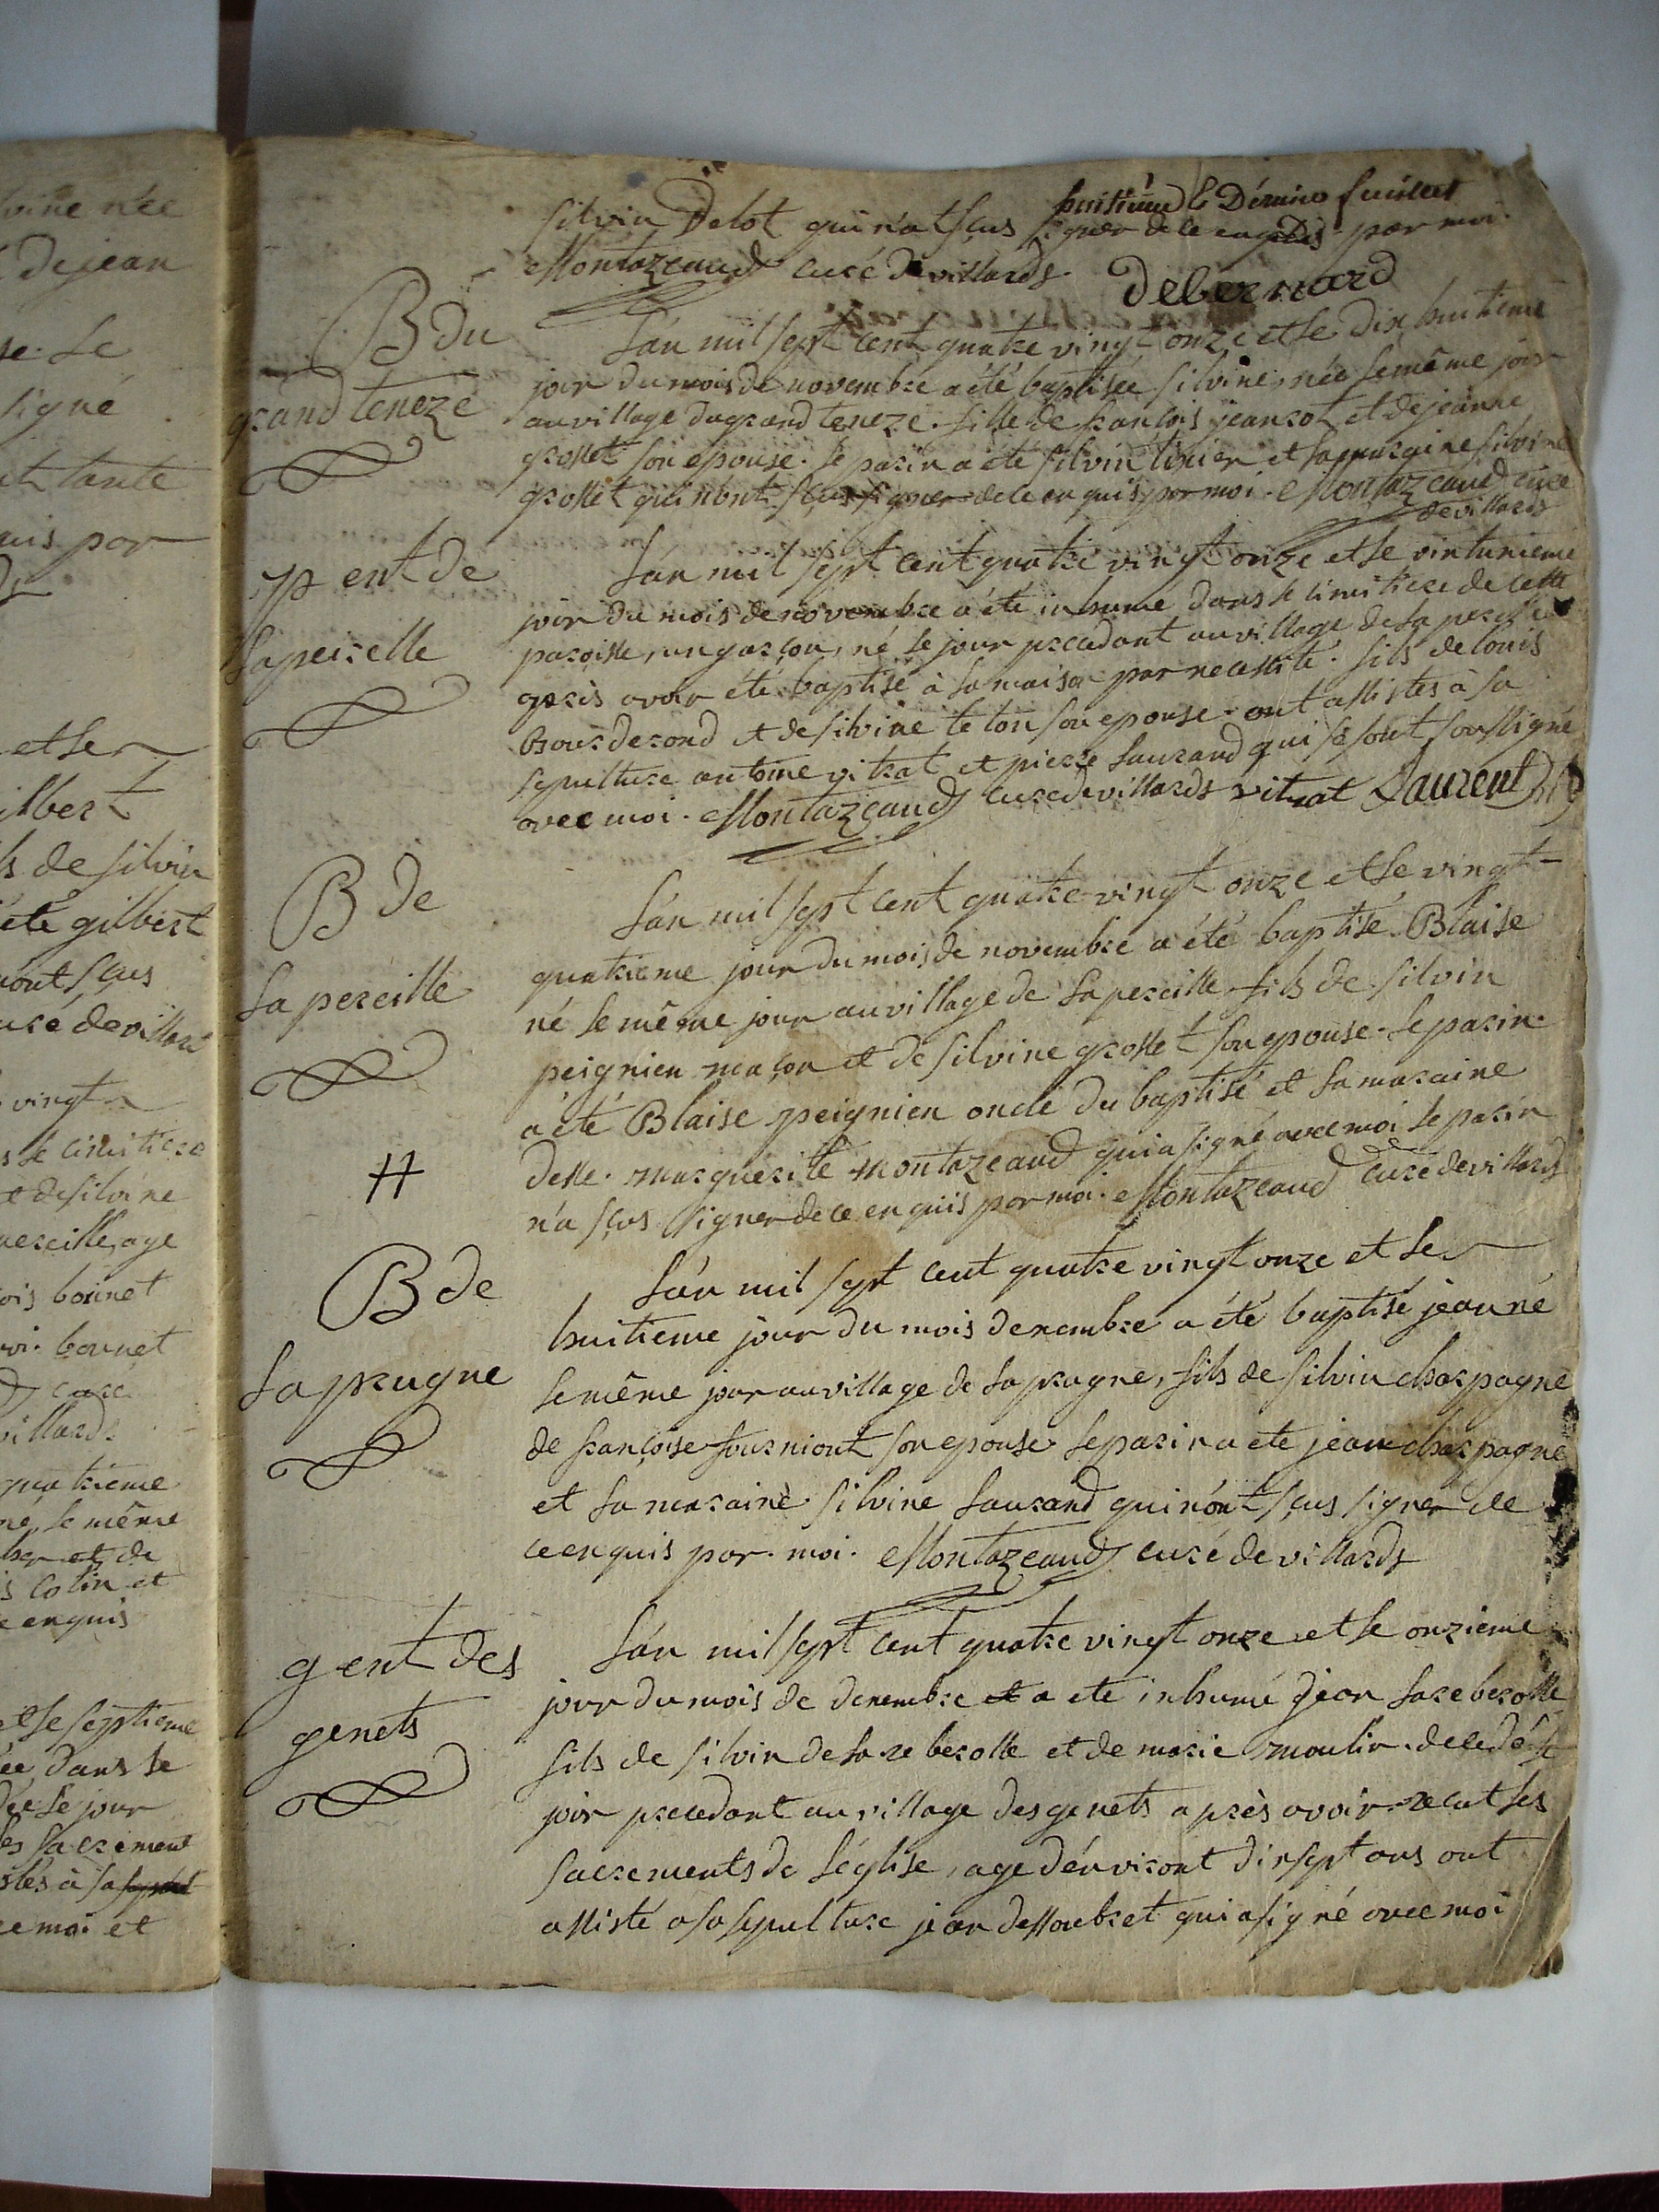 silvin Delot qui n'at sçus signer de ce enquis par moi.
huitieme & Dernier feuillet
Montazeaud curé de villards. Debernard
B du
grand teneze
L'an mil sept cent quatre vingt onze et le dix huitieme
jour du mois de novembre a été baptisée silvine, née le même jour
au village du grand teneze. fille de françois jeanrot et de jeanne
grosset son epouse. le parin a été silvin tixier et la maraine silvine
grosset qui n'ont sçus signer de ce enquis par moi. Montazeaud curé
de villards
p ent de
la pereille
L'an mil sept cent quatre vingt onze et le vintunieme
jour du mois de novembre a été inhume dans le cimitiere de cette
paroisse, un garçon, né le jour precedant au village de la pereille
après avoir été baptisé à la maison par necessité. fils de louis
Bourderond et de silvine teton son epouse. ont assistes à sa
sepulture antoine vitrat et pierre laurand qui se sont soussigné
avec moi. Montazeaud curé de villards vitrat Laurent
B de
la pereille
L'an mil sept cent quatre vingt onze et le vingt
quatrieme jour du mois de novembre a été baptisé. Blaise
né le même jour au village de la pereille, fils de silvin
peignien maçon et de silvine grosset son epouse. le parin
a été Blaise peignien oncle du baptisé et la maraine
delle. marguerite montazeaud qui a signé avec moi le parin
n'a sçus signer de ce enquis par moi. Montazeaud curé de villards
B de
la prugne
L'an mil sept cent quatre vingt onze et le
huitieme jour du mois decembre a été baptisé jean né
le même jour au village de la prugne, fils de silvin charpagne
de françoise fourniont son epouse le parin a ete jean charpagne
et la maraine silvine laurand qui n'ont sçus signer de
ce enquis par. moi. Montazeaud curé de villards
g ent des
genets
L'an mil sept cent quatre vingt onze et le onzieme
jour du mois de decembre et a ete inhumé jean lareberolle
fils de silvin de la re berolle et de marie moulin. decedé le
jour precedant au village des genets après avoir recut les
sacrements de l'église, age d'environt dixsept ans ont
assisté a sa sepulture jean dessoubret qui a signé avec moi